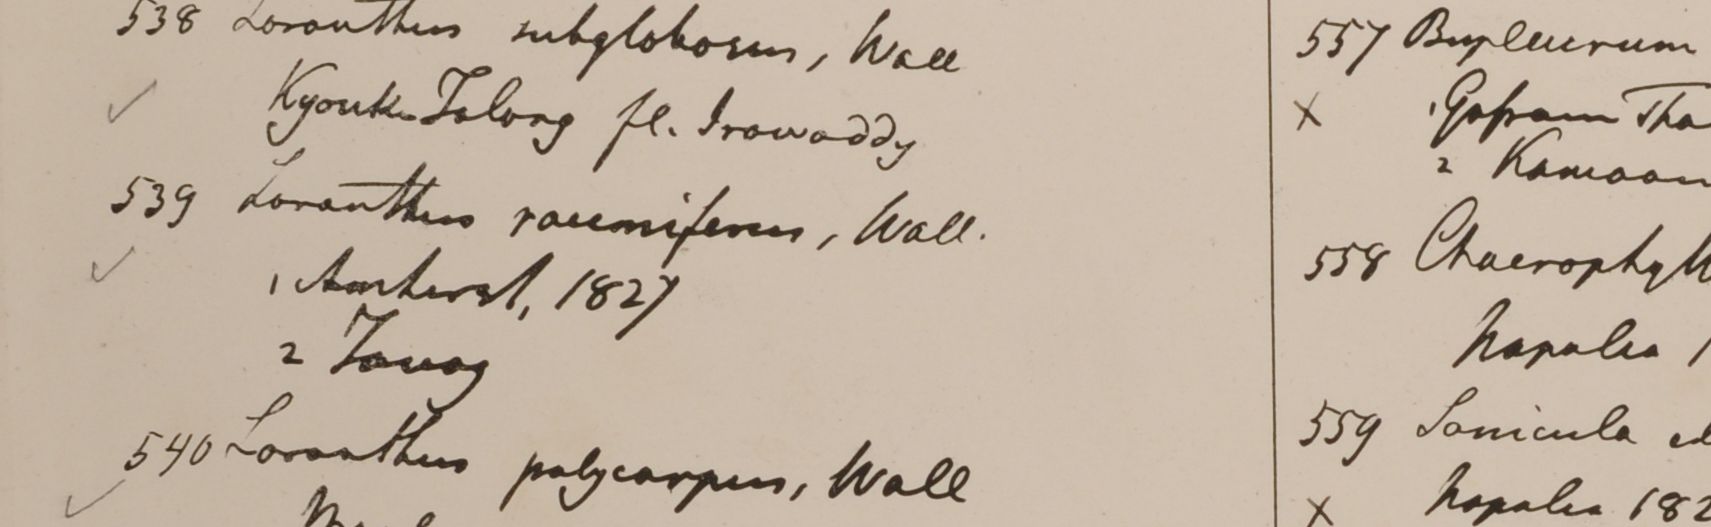 538 Loranthus subglobosus, Wall
Kyouk-Talong fl. Irawaddy
539 Loranthus racemiferus, Wall.
1 Amherst, 1827
2 Tavoy
540 Loranthus polycarpus, Wall
557 Bupleurum
1 Gosram Tha
2 Kamaon
558 Chaerophyll
Napalia 1
559 Sanicula el
Napalia 182